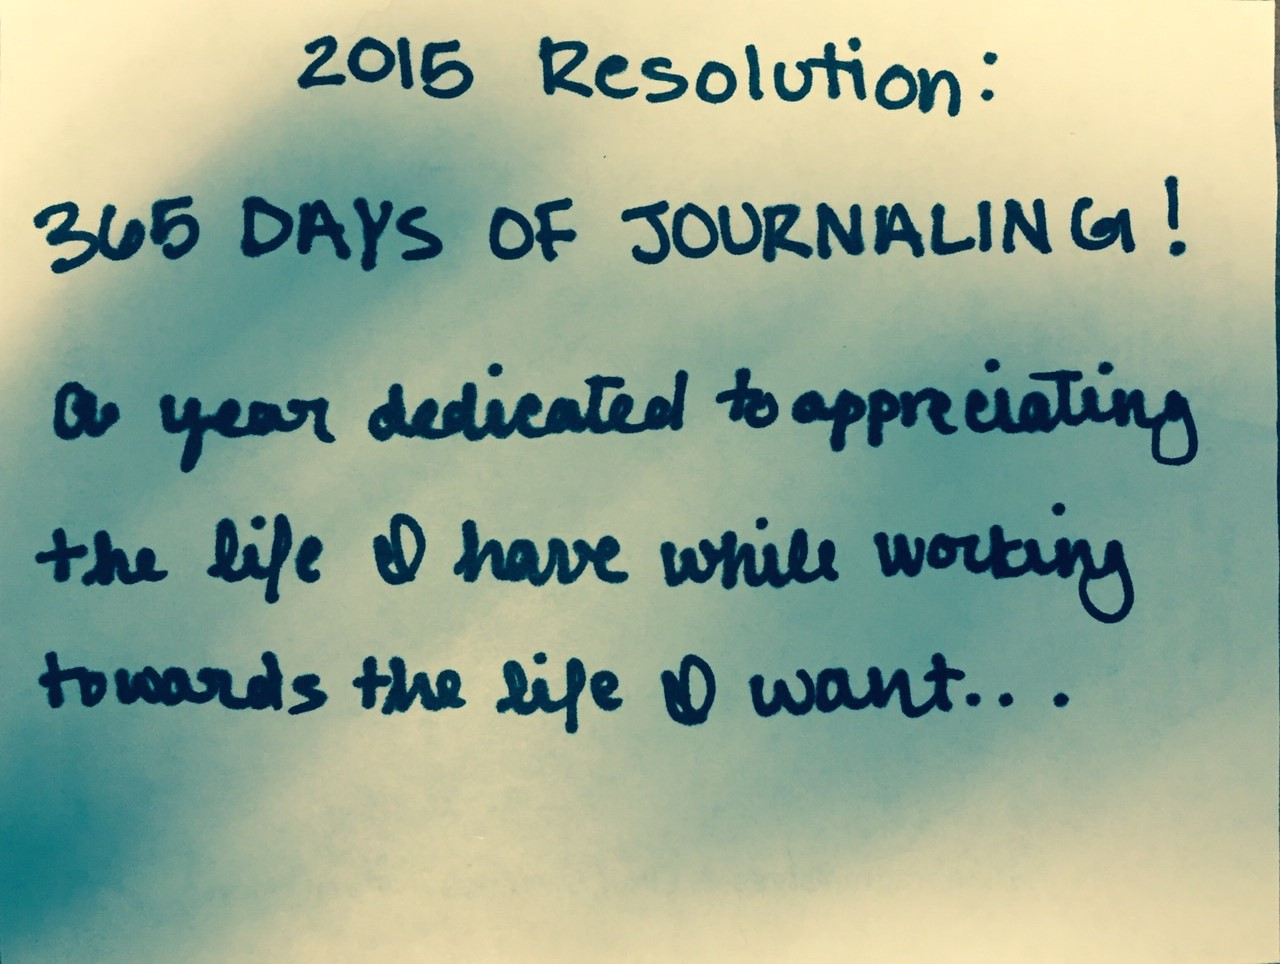 2015 Resolution:
365 DAYS OF JOURNALING!
a year dedicated to appreciating
the life I have while working
towards the life I want...